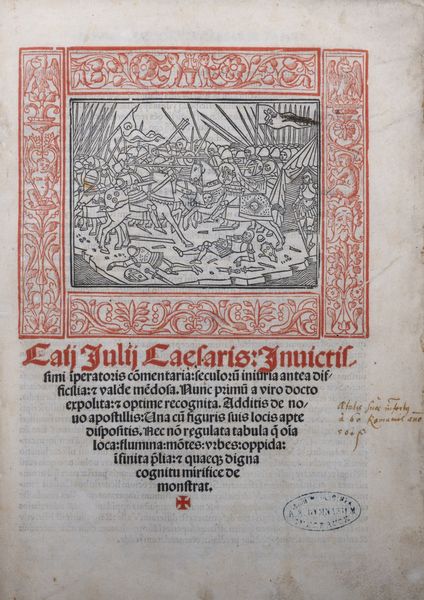 Caij Julij Caesaris: Invictis-
simi īperatoris cōmentaria: seculoꝝ iniuria antea dif-
ficilia: ⁊ valde mēdosa. Nunc primū a viro docto
expolita: ⁊ optime recognita. Additis de no-
vo apostillis: Una cū figuris suis locis apte
dispositis. Nec nō regulata tabula q̄ oīa
loca: flumina: mōtes: vrbes: oppida:
īfinita p̄lia: ⁊ quaeqꝫ digna
cognitu mirifice de
monstrat.